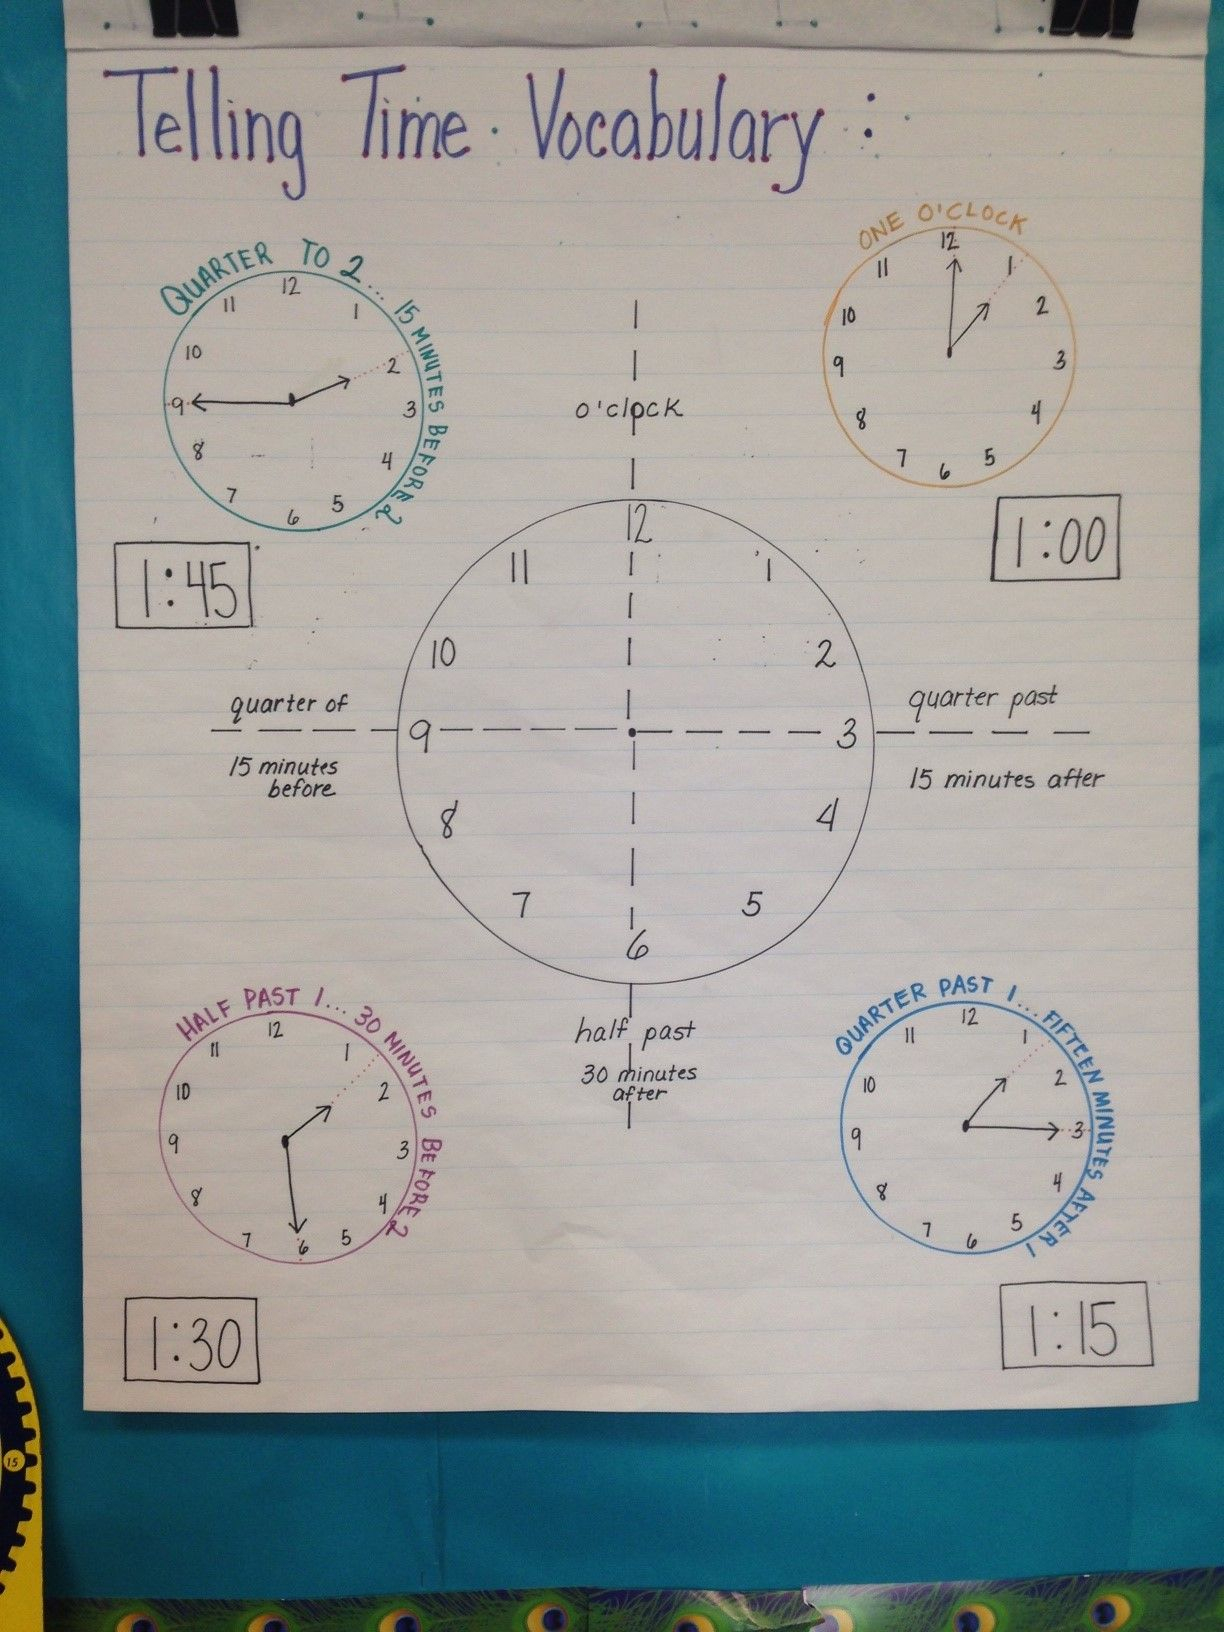 Telling Time Vocabulary :
QUARTER TO 2... 15 MINUTES BEFORE 2
12
1
2
3
4
5
6
7
8
9
10
11
1:45
ONE O'CLOCK
12
1
2
3
4
5
6
7
8
9
10
11
1:00
o'clock
12
1
2
3
4
5
6
7
8
9
10
11
quarter of
15 minutes
before
quarter past
15 minutes after
half past
30 minutes
after
HALF PAST 1... 30 MINUTES BEFORE 2
12
1
2
3
4
5
6
7
8
9
10
11
1:30
QUARTER PAST 1... FIFTEEN MINUTES AFTER 1
12
1
2
3
4
5
6
7
8
9
10
11
1:15
15